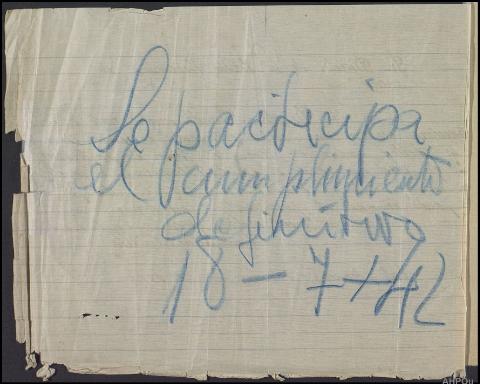 Se participa
el cumplimiento
definitivo
18-7-42
AHPOu